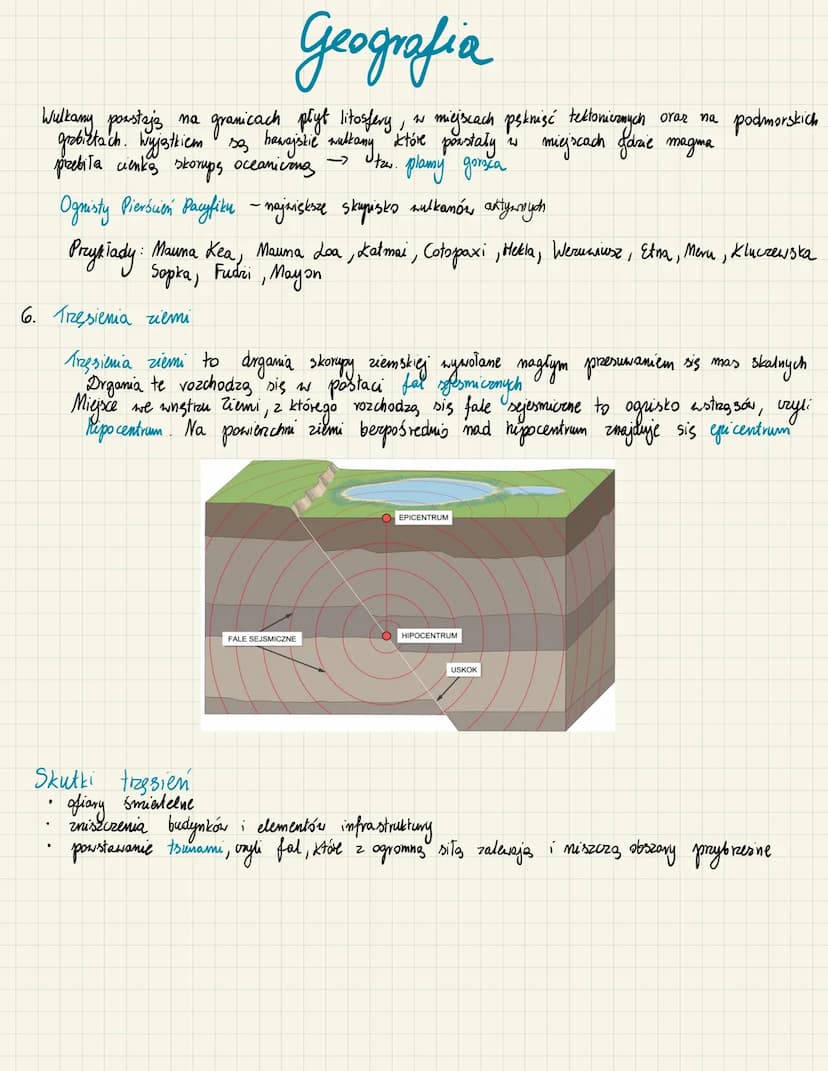 Geografia
Wulkany powstają na granicach płyt litosfery, w miejscach pęknięć tektonicznych oraz na podmorskich
grzbietach. Wyjątkiem są hawajskie wulkany które powstały w miejscach gdzie magma
przebiła cienką skorupę oceaniczną → tzw. plamy gorąca
Ognisty Pierścień Pacyfiku - największe skupisko wulkanów aktywnych
Przykłady: Mauna Kea, Mauna Loa, Katmai, Cotopaxi, Hekla, Wezuwiusz, Etna, Meru, Kluczewska
Sopka, Fudżi, Mayon
6. Trzęsienia ziemi
Trzęsienia ziemi to drgania skorupy ziemskiej wywołane nagłym przesuwaniem się mas skalnych
Drgania te rozchodzą się w postaci fal sejsmicznych
Miejsce we wnętrzu Ziemi, z którego rozchodzą się fale sejesmiczne to ognisko wstrząsów, czyli
hipocentrum. Na powierzchni ziemi bezpośrednio nad hipocentrum znajduje się epicentrum
EPICENTRUM
FALE SEJSMICZNE
HIPOCENTRUM
USKOK
Skutki trzęsień
• ofiary śmiertelne
• zniszczenia budynków i elementów infrastruktury
• powstawanie tsunami, czyli fal, które z ogromną siłą zalewają i niszczą obszary przybrzeżne